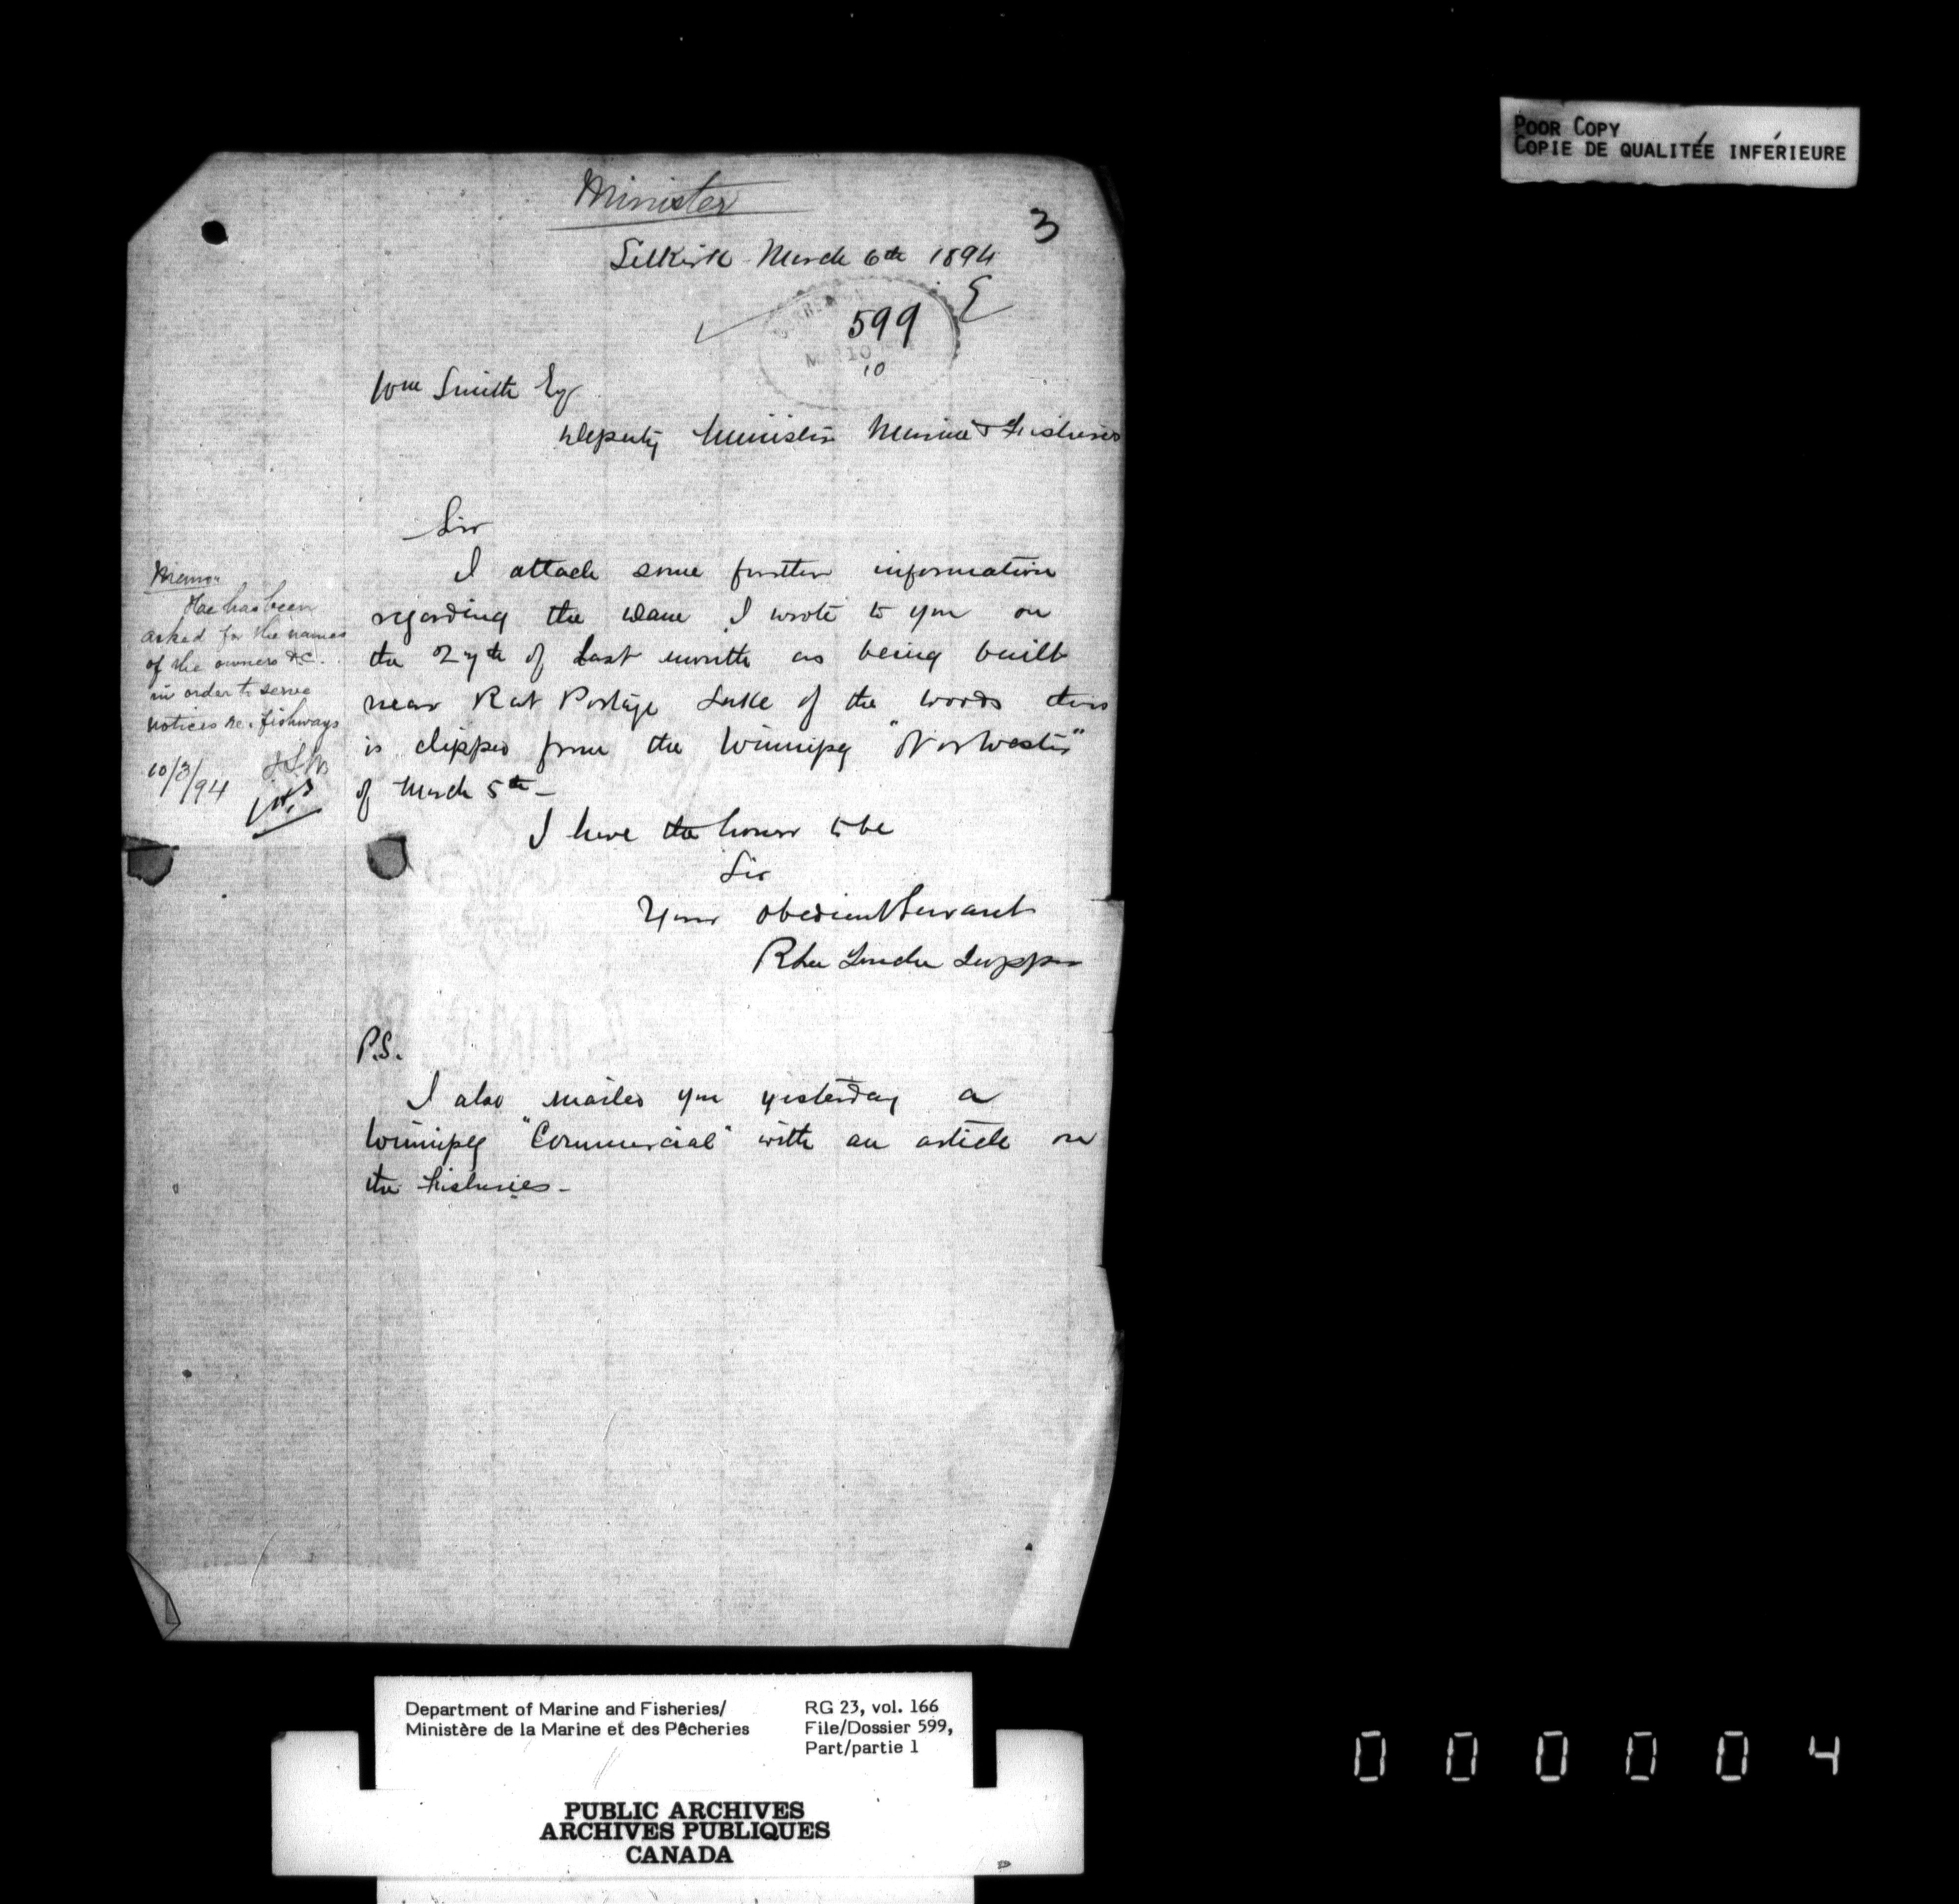 POOR COPY
COPIE DE QUALITÉE INFÉRIEURE
Minister
3
Selkirk March 6th 1894
599
MAR 10
10
Wm Smith Esq
Deputy Minister Marine & Fisheries
Sir
I attach some further information
regarding the dam I wrote to you on
the 27th of last month as being built
near Rat Portage Lake of the Woods this
is clipped from the Winnipeg "Norwester"
of March 5th -
I have the honor to be
Sir
Your obedient Servant
Tupper
P.S.
I also mailed you yesterday a
Winnipeg "Commercial" with an article on
the Fisheries -
Memo.
He has been
asked for the names
of the owners &c.
in order to serve
notices re. fishways
10/3/94
Department of Marine and Fisheries/
Ministère de la Marine et des Pêcheries
RG 23, vol. 166
File/Dossier 599,
Part/partie 1
PUBLIC ARCHIVES
ARCHIVES PUBLIQUES
CANADA
000004